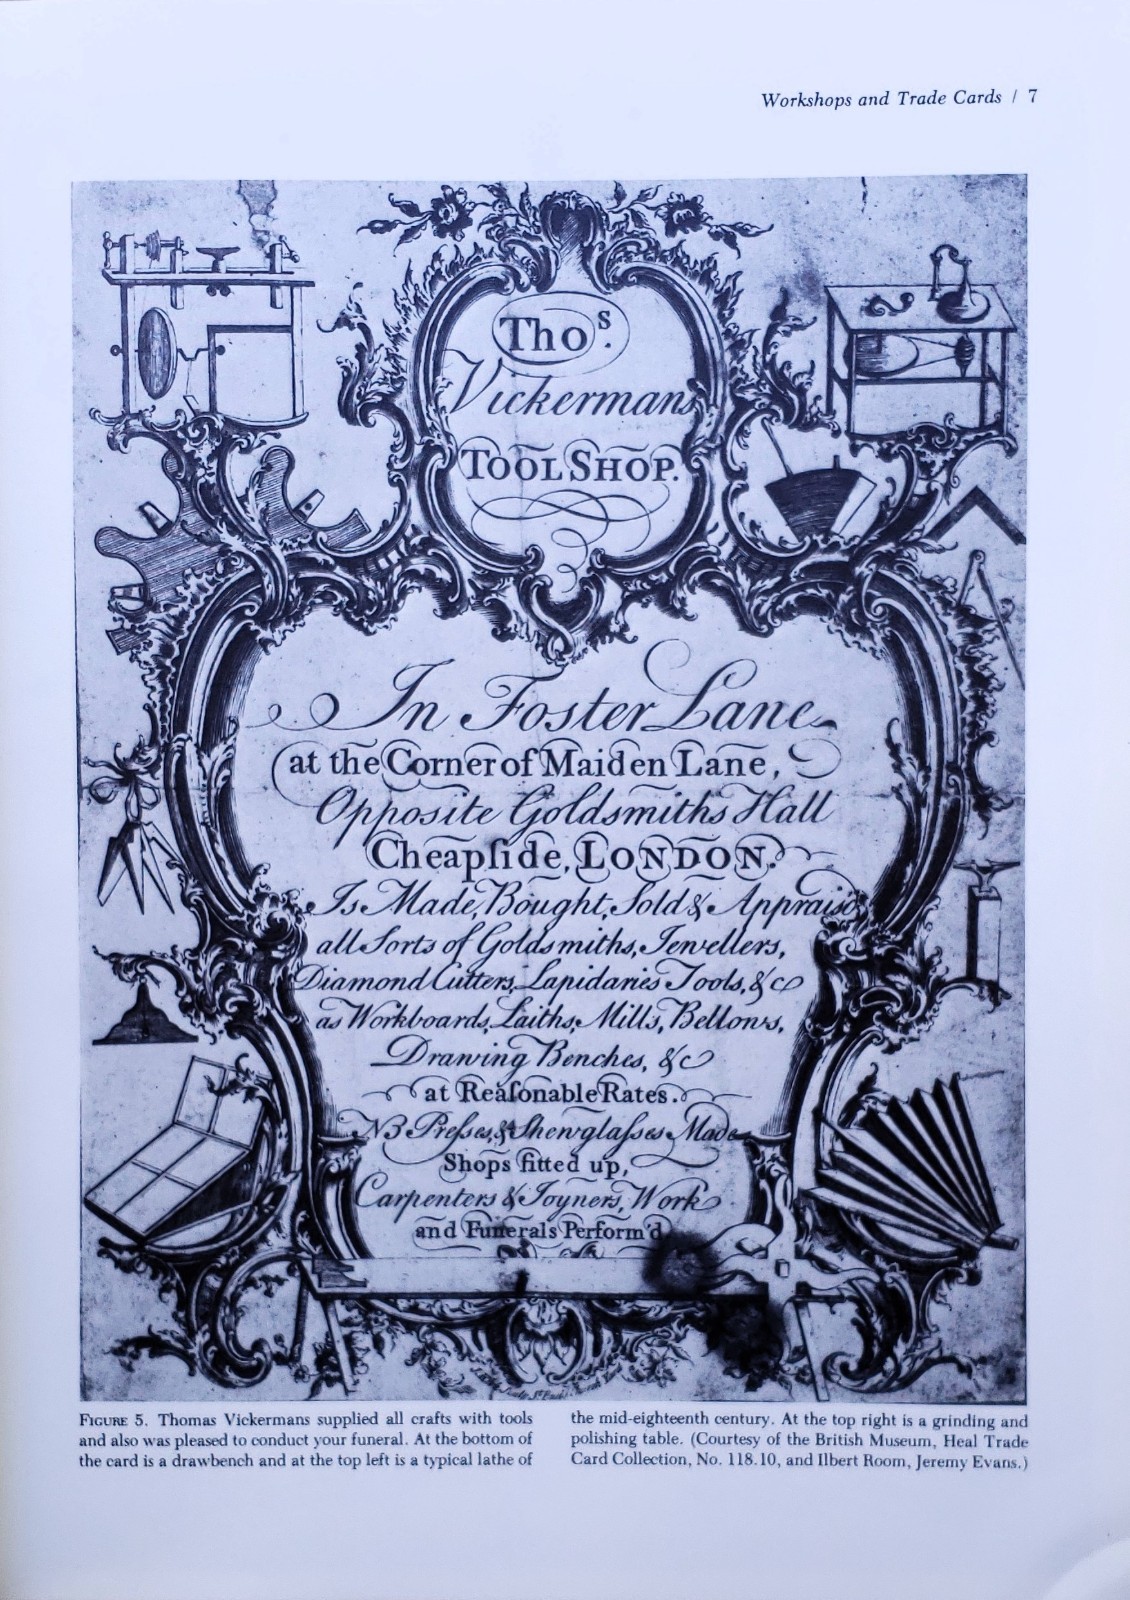 Workshops and Trade Cards / 7
Thoˢ.
Vickermans
TOOL SHOP.
In Foster Lane
at the Corner of Maiden Lane,
Opposite Goldsmiths Hall
Cheapſide, LONDON.
Is Made, Bought, Sold & Apprais'd
all Sorts of Goldsmiths, Jewellers,
Diamond Cutters, Lapidaries Tools, &c
as Workboards, Laiths, Mills, Bellows,
Drawing Benches, &c
at Reaſonable Rates.
NB Preſses, & Shewglaſses Made
Shops fitted up,
Carpenters & Joyners, Work
and Funerals Perform'd
FIGURE 5. Thomas Vickermans supplied all crafts with tools
and also was pleased to conduct your funeral. At the bottom of
the card is a drawbench and at the top left is a typical lathe of
the mid-eighteenth century. At the top right is a grinding and
polishing table. (Courtesy of the British Museum, Heal Trade
Card Collection, No. 118.10, and Ilbert Room, Jeremy Evans.)